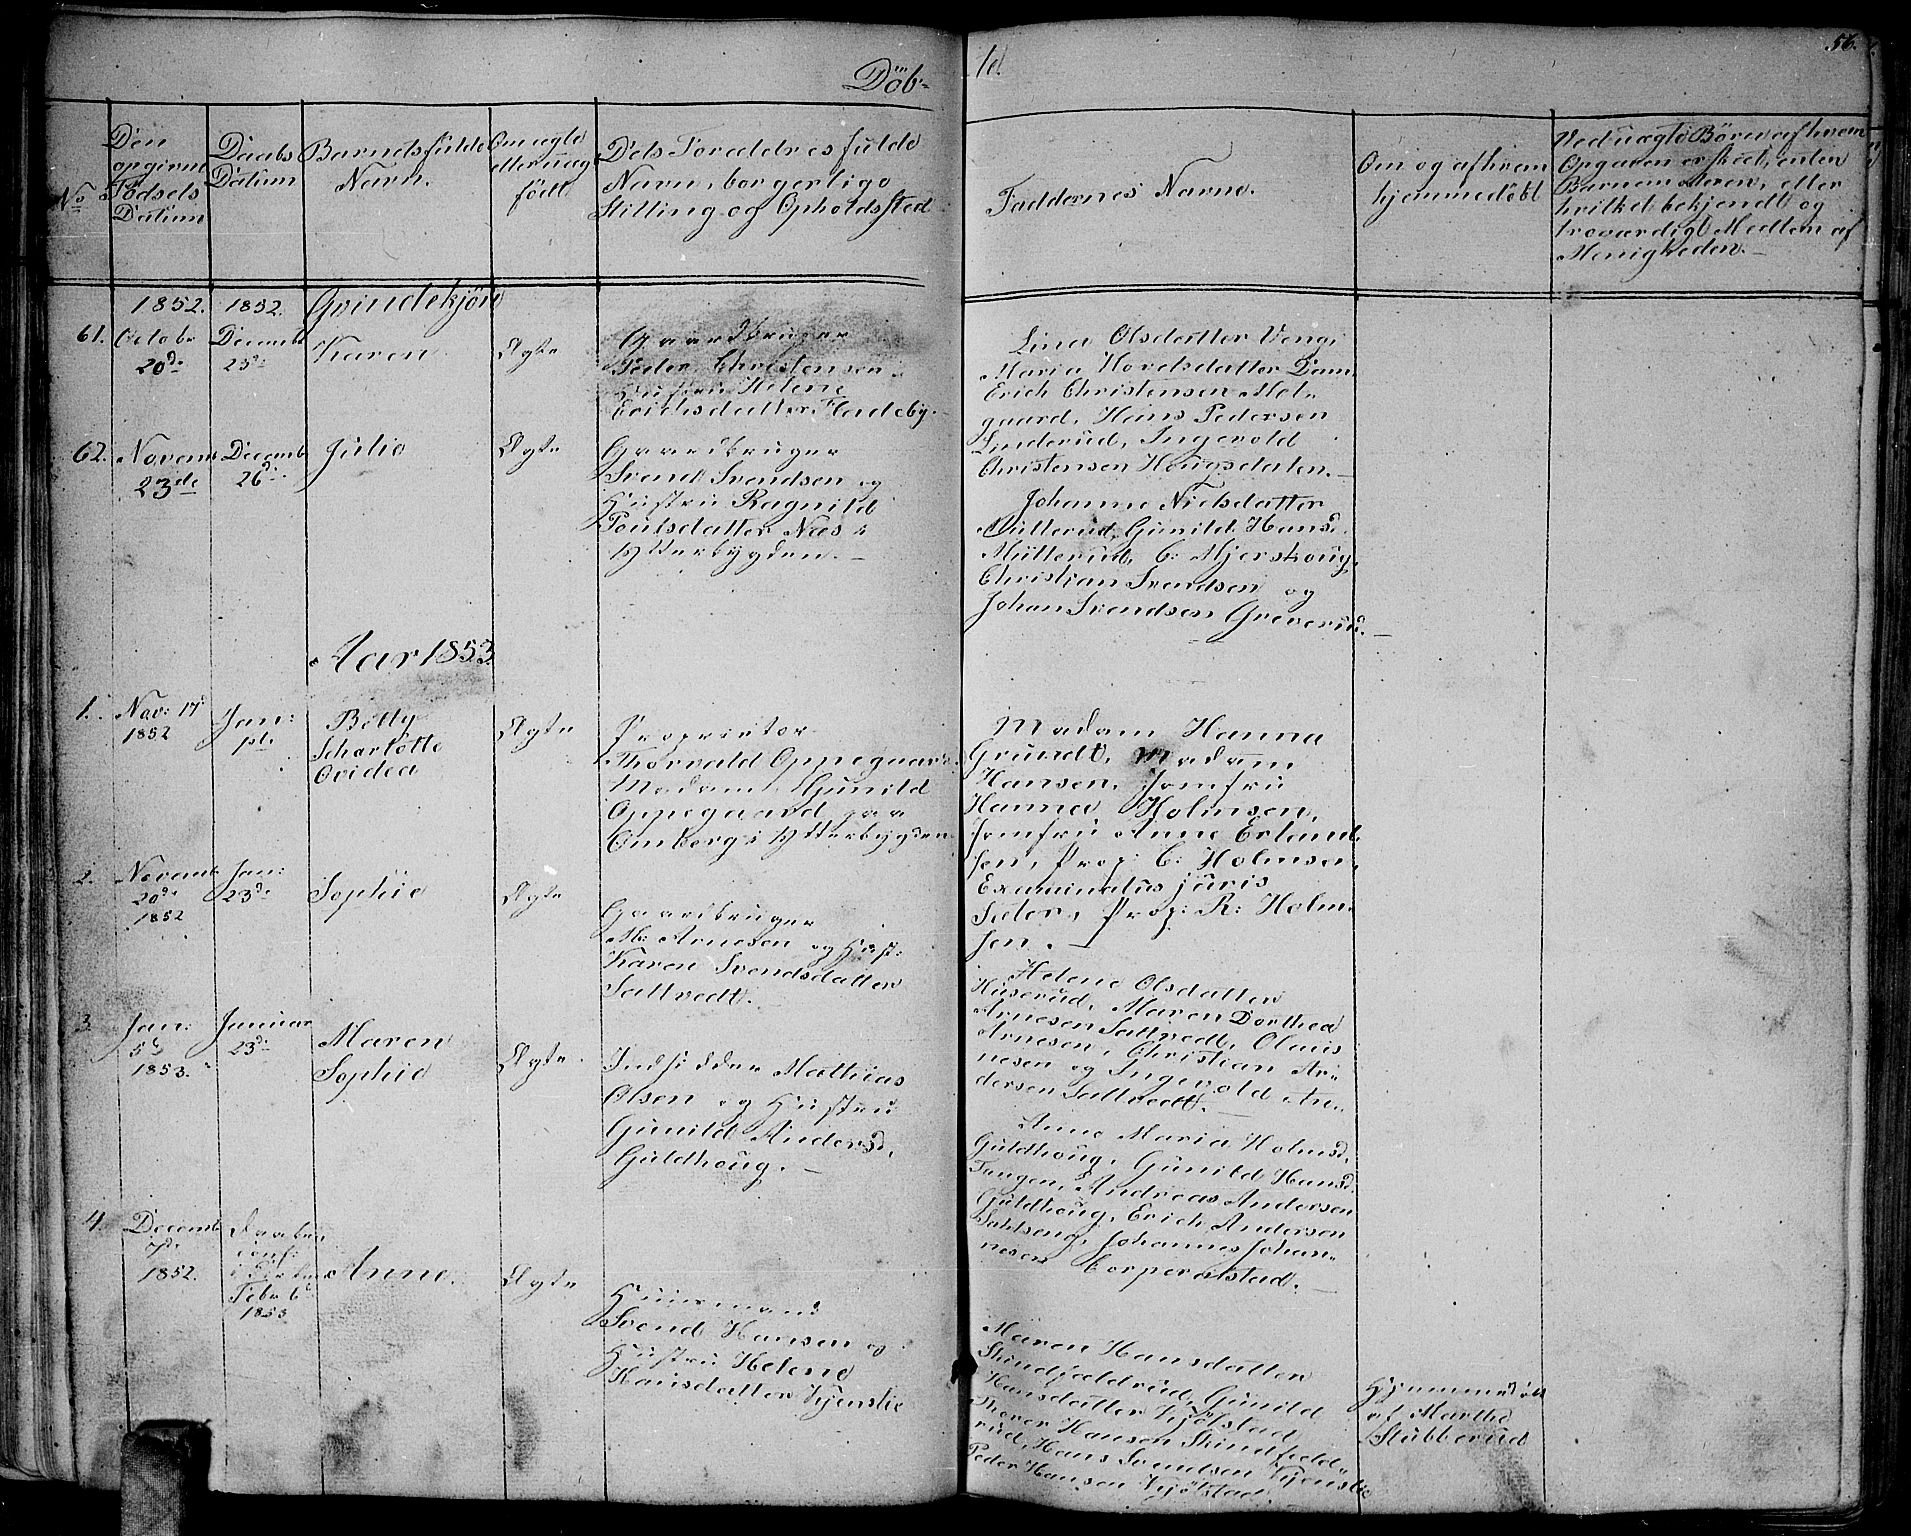 Döb-
te.
56.
No
Den
opgivne
Födsels
Datum
Daabs
Datum
Barnets fulde
Navn.
Om ægte
eller uægte
födt
Dets Foreldres fulde
Navn, borgerlige
Stilling og Opholdssted
Faddernes Navne.
Om og af hvem
hjemmedöbt
Ved uægte Börn af hvem
Opgaven er skeet, enten
Barnemoderen, eller
hvilket bekjendt og
troværdigt Medlem af
Menigheden.
1852. 1852. Qvindekjön
61.
Octobr
20de
Decemb
23de
Karen
Ægte
Gaardbruger
Peder Christensen
Hustru Helene
Erichsdatter Fladeby.
Lina Olsdatter Veng,
Maria Hovelsdatter Dam,
Erich Christensen Mel-
gaard, Hans Pedersen
Linderud, Ingevold
Christensen Hougsdalen.
62.
Novemb
23de
Decemb
26de
Julie
Ægte
Gaardbruger
Svend Svendsen og
Hustru Ragnild
Poulsdatter Næs i
Ytterbygden.
Johanne Nielsdatter
Mütterud, Gunild Hansd.
Mütterud, C: Mjerskoug,
Christian Svendsen og
Johan Svendsen Greverud.
Aar 1853
1.
Nov: 17d
1852
Jan:
1ste
Betty
Scharlotte
Ovidea
Ægte
Proprietor
Thorvald Oppegaard
Madam Gunild
Oppegaard paa
Omberg i Ytterbygden
Madam Hanna
Grundt, Madam
Hansen, Jomfru
Hanna Holmsen,
Jomfru Anne Erland-
sen, Prop: C: Holmsen,
Examinatus juris
Seter, Prop: R: Holm-
sen.
2.
Novemb
20de
1852
Jan:
23de
Sophie
Ægte
Gaardbruger
M: Arnesen og Hust:
Karen Svendsdatter
Sattvedt.
Helene Olsdatter
Huserud, Maren Dorthea
Arnesen Sattvedt, Olaus
Arnesen, Christian Ar-
nesen og Ingevold An-
dersen Sattvedt.
3.
Jan:
5te
1853.
Januar
23de
Maren
Sophie
Ægte
Indsidder Mathias
Olsen og Hustru
Gunild Andersd.
Guldhoug.
Anne Maria Holmsd.
Guldhoug, Gunild Hansd.
Tangen, Andreas Andersen
Guldhoug, Erich Andersen
Sahlseng, Johannes Johan-
nesen Corperalstad.
4.
Decemb
7de
1852.
Daaben
conf:
i Kirken
Febr 6te
1853
Anne.
Ægte
Huusmand
Svend Hansen og
Hustru Helene
Hansdatter Kjenslie
Maren Hansdatter
Skindfældrud, Gunild
Hansdatter Kjölstad
Thorer Hansen Skindfæld-
rud, Hans Svendsen Kjenslie
Peder Hansen Kjölstad.
Hjemmedöbt
af Marthe
Stubberud